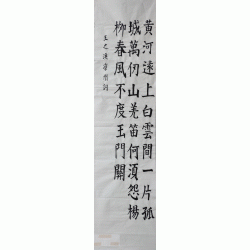 黃河遠上白雲間一片孤
城萬仞山羌笛何須怨楊
柳春風不度玉門關
王之渙